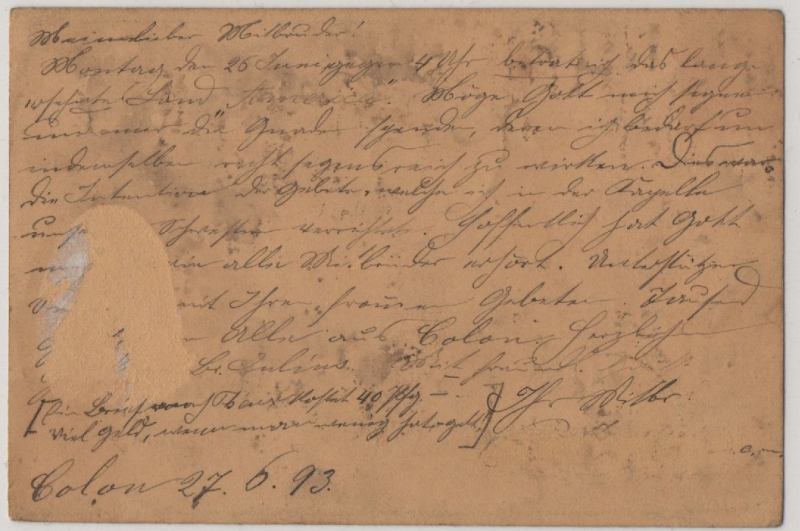 Mein lieber Mitbruder!
Montag den 26 Juni gegen 4 Uhr betrat ich das lang
ersehnte Land "America". Möge Gott mich segnen
und mir die Gnaden spenden, deren ich bedarf um
in demselben recht segensreich zu wirken. Dies war
die Intention der Gebete, welche ich in der Kapelle
Schwestern verrichtet. Hoffentlich hat Gott
alle Mitbrüder erhört. Unterstützen
mit Ihren frommen Gebeten. Tausend
Alle aus Colon. Herzlichen
Br. Julius.
[Ein Brief nach kostet 40 Pfg. — Ihr Mitbr.
viel Geld, wenn man wenig hat
Colon 27. 6. 93.